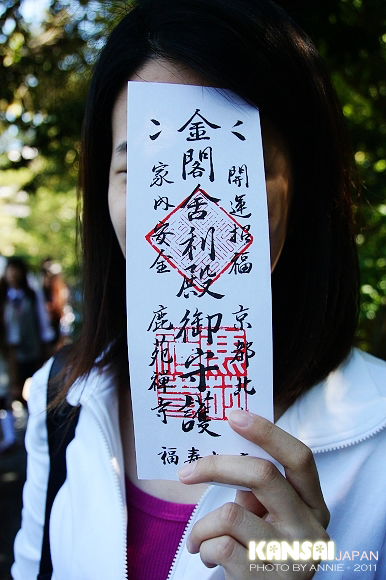 開運招福
京都北
金閣舎利殿御守護
家内安全
鹿苑禅寺
寿福
KANSAI JAPAN
PHOTO BY ANNIE - 2011